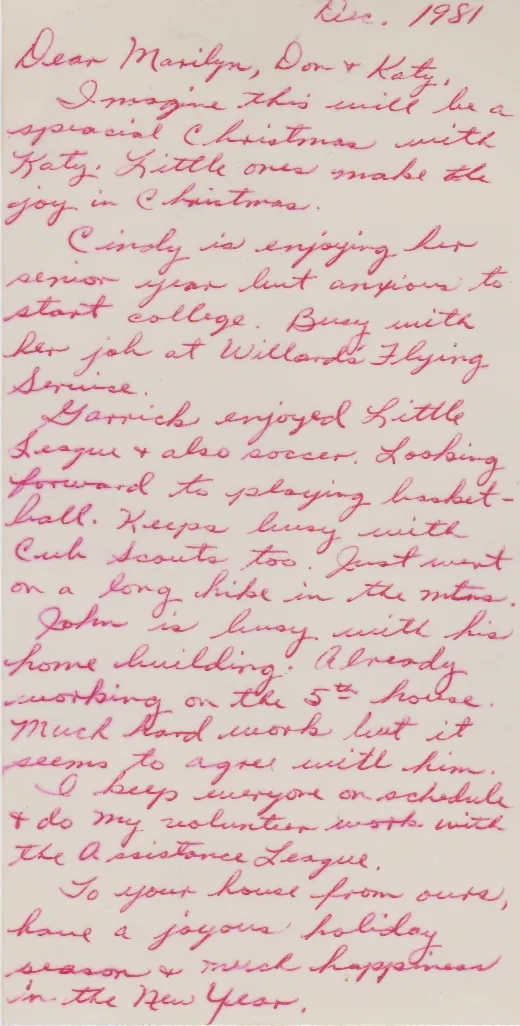 Dec. 1981
Dear Marilyn, Don + Katy,
I magine this will be a
speacial Christmas with
Katy. Little ones make the
joy in Christmas.
Cindy is enjoying her
senior year but anxious to
start college. Busy with
her job at Willard's Flying
Service.
Garrick enjoyed Little
League + also soccer. Looking
forward to playing basket-
ball. Keeps busy with
Cub Scouts too. Just went
on a long hike in the mtns.
John is busy with his
home building. Already
working on the 5th house.
Much hard work but it
seems to agree with him.
I keep everyone on schedule
+ do my volunteer work with
the Assistance League.
To your house from ours,
have a joyous holiday
season + much happiness
in the New Year.